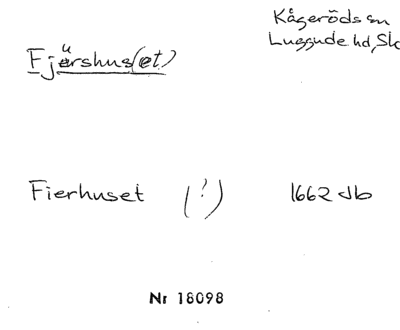 Kågeröds sn
Luggude hd, Sk
Fjärshus(et)
Fierhuset (?) 1662 Jb
Nr 18098